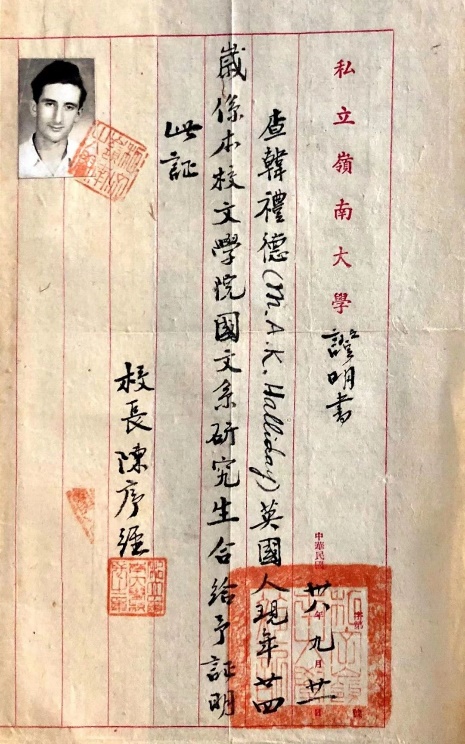 私立嶺南大學證明書
字第 號
中華民國卅八年九月廿一日
查韓禮德(M.A.K. Halliday)英國人現年廿四
歲係本校文學院國文系研究生合給予証明
此証
校長陳序經